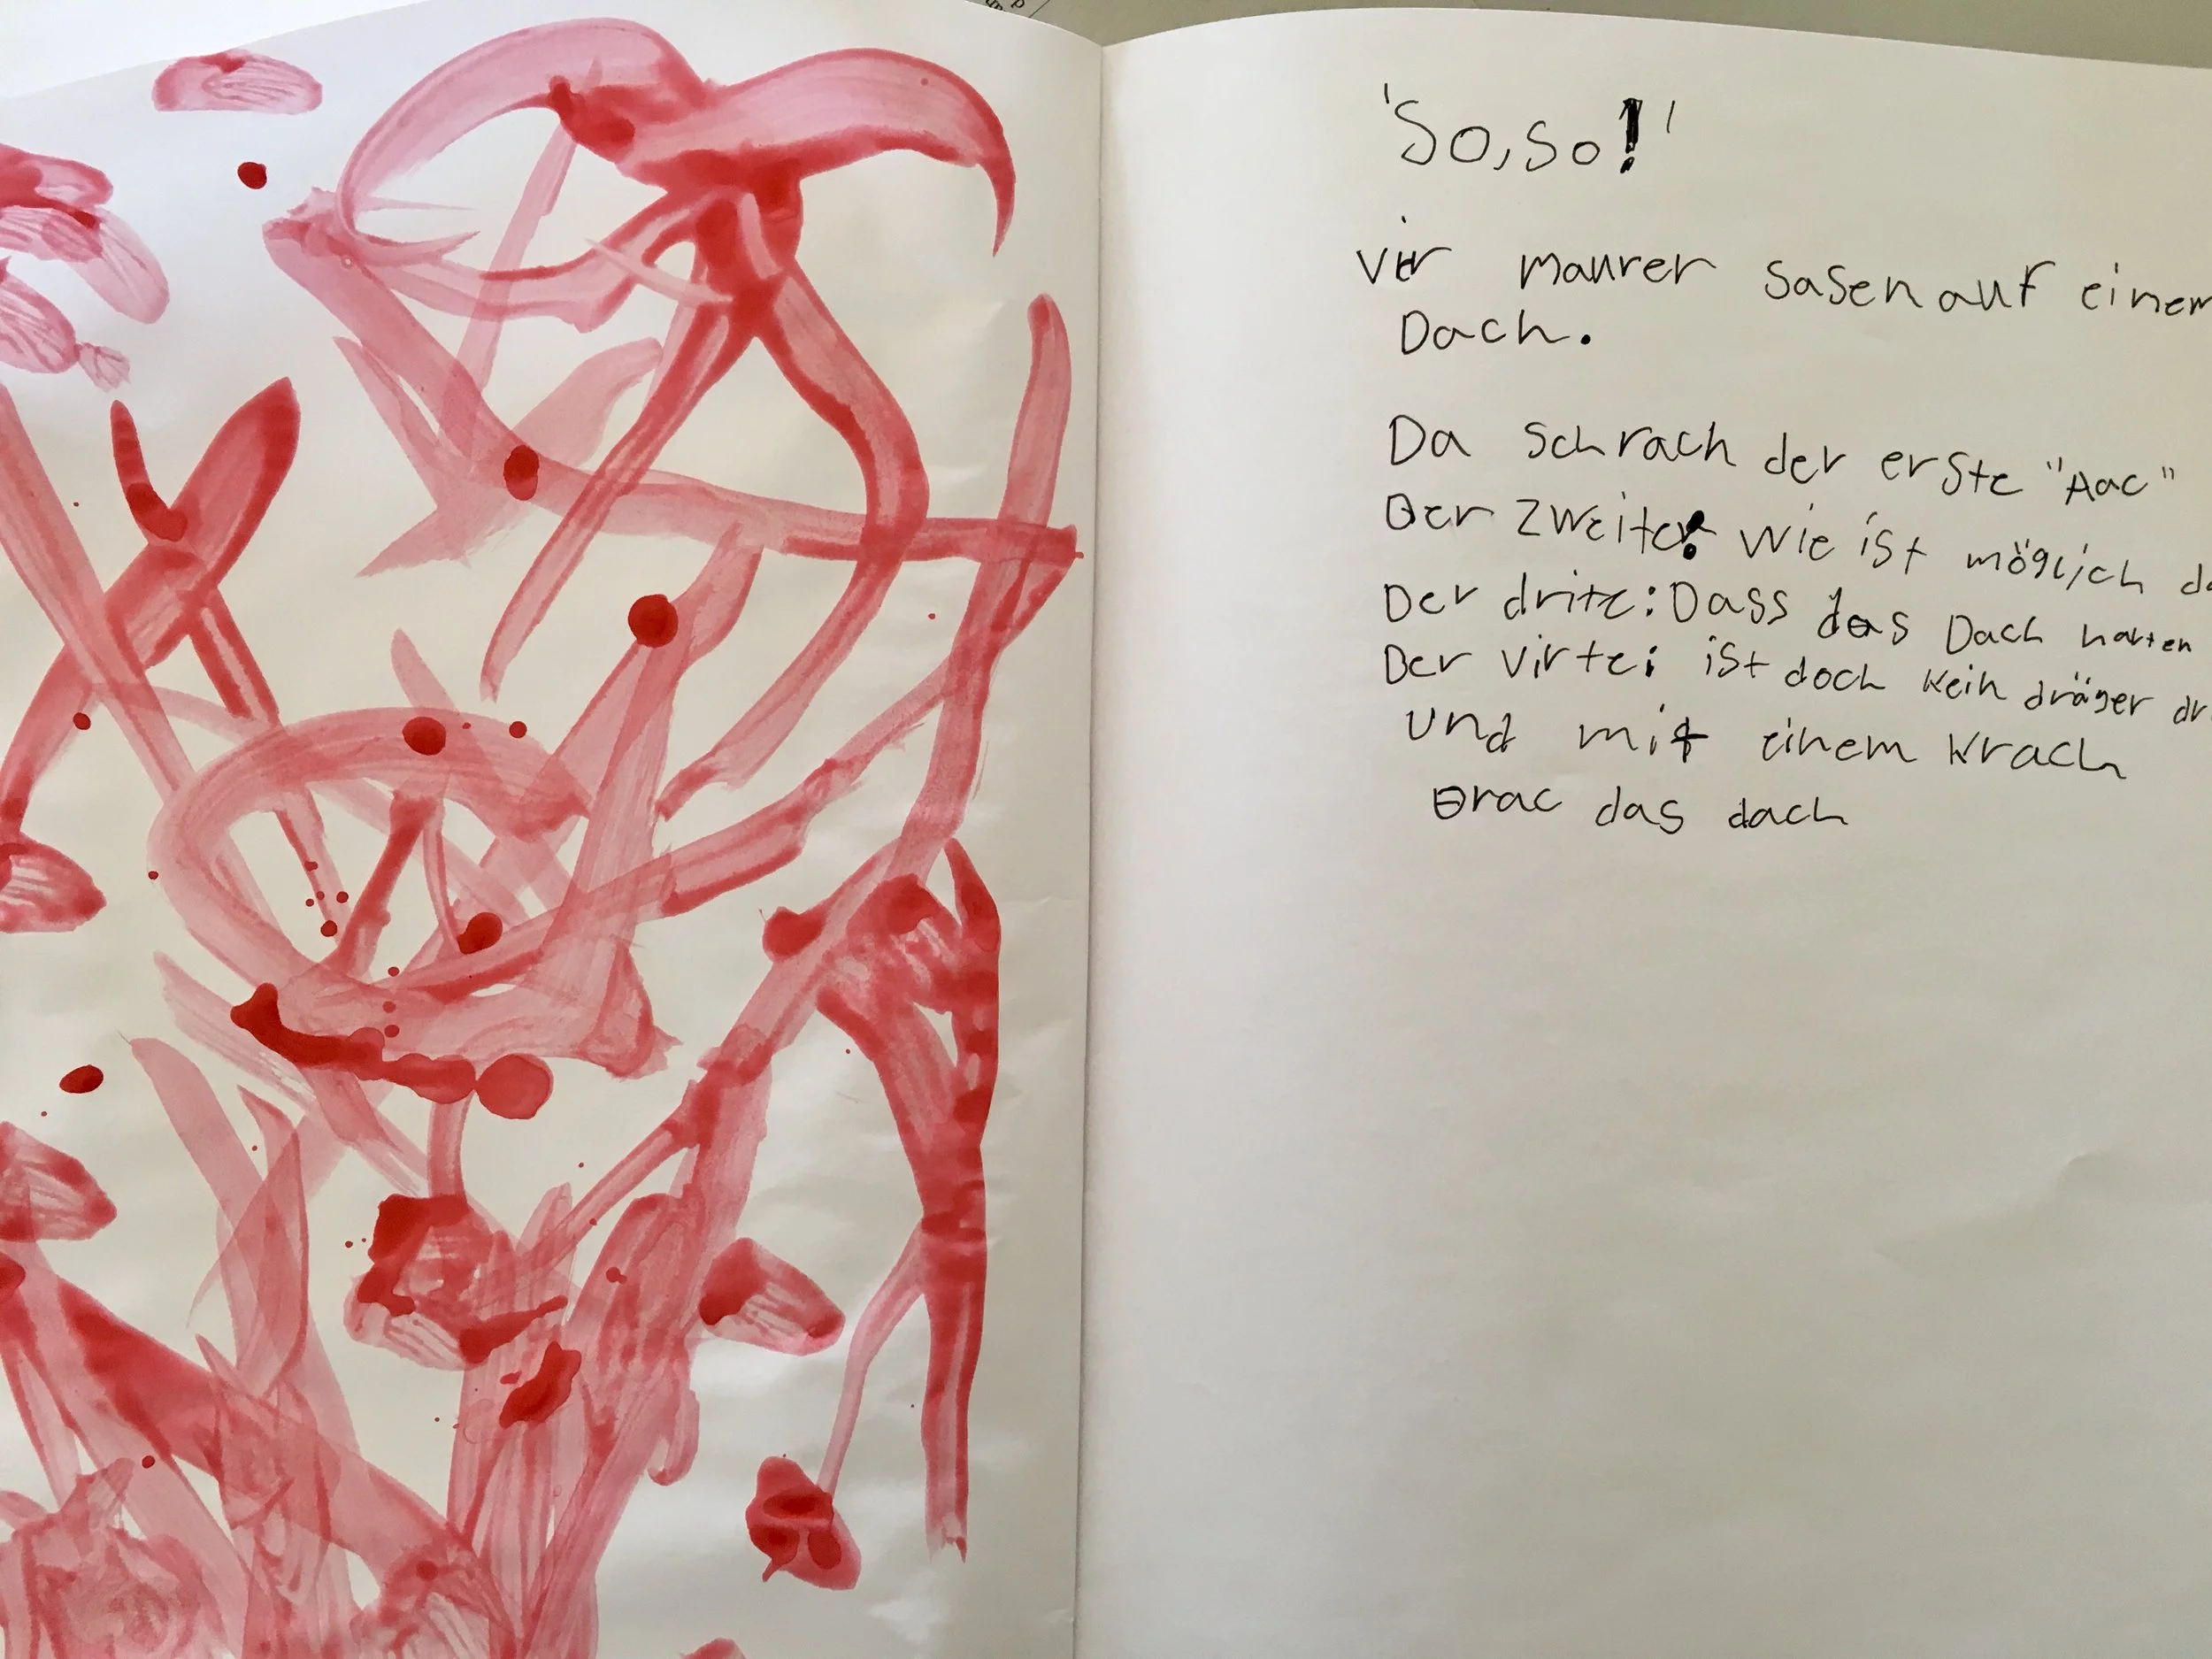 'So, so!'
vir maurer sasen auf einem
Dach.
Da schrach der erste "Aac"
Der zweite: wie ist möglich
Der drite: Dass das Dach halten
Der virte: ist doch kein dräger
und mit einem krach
brac das dach